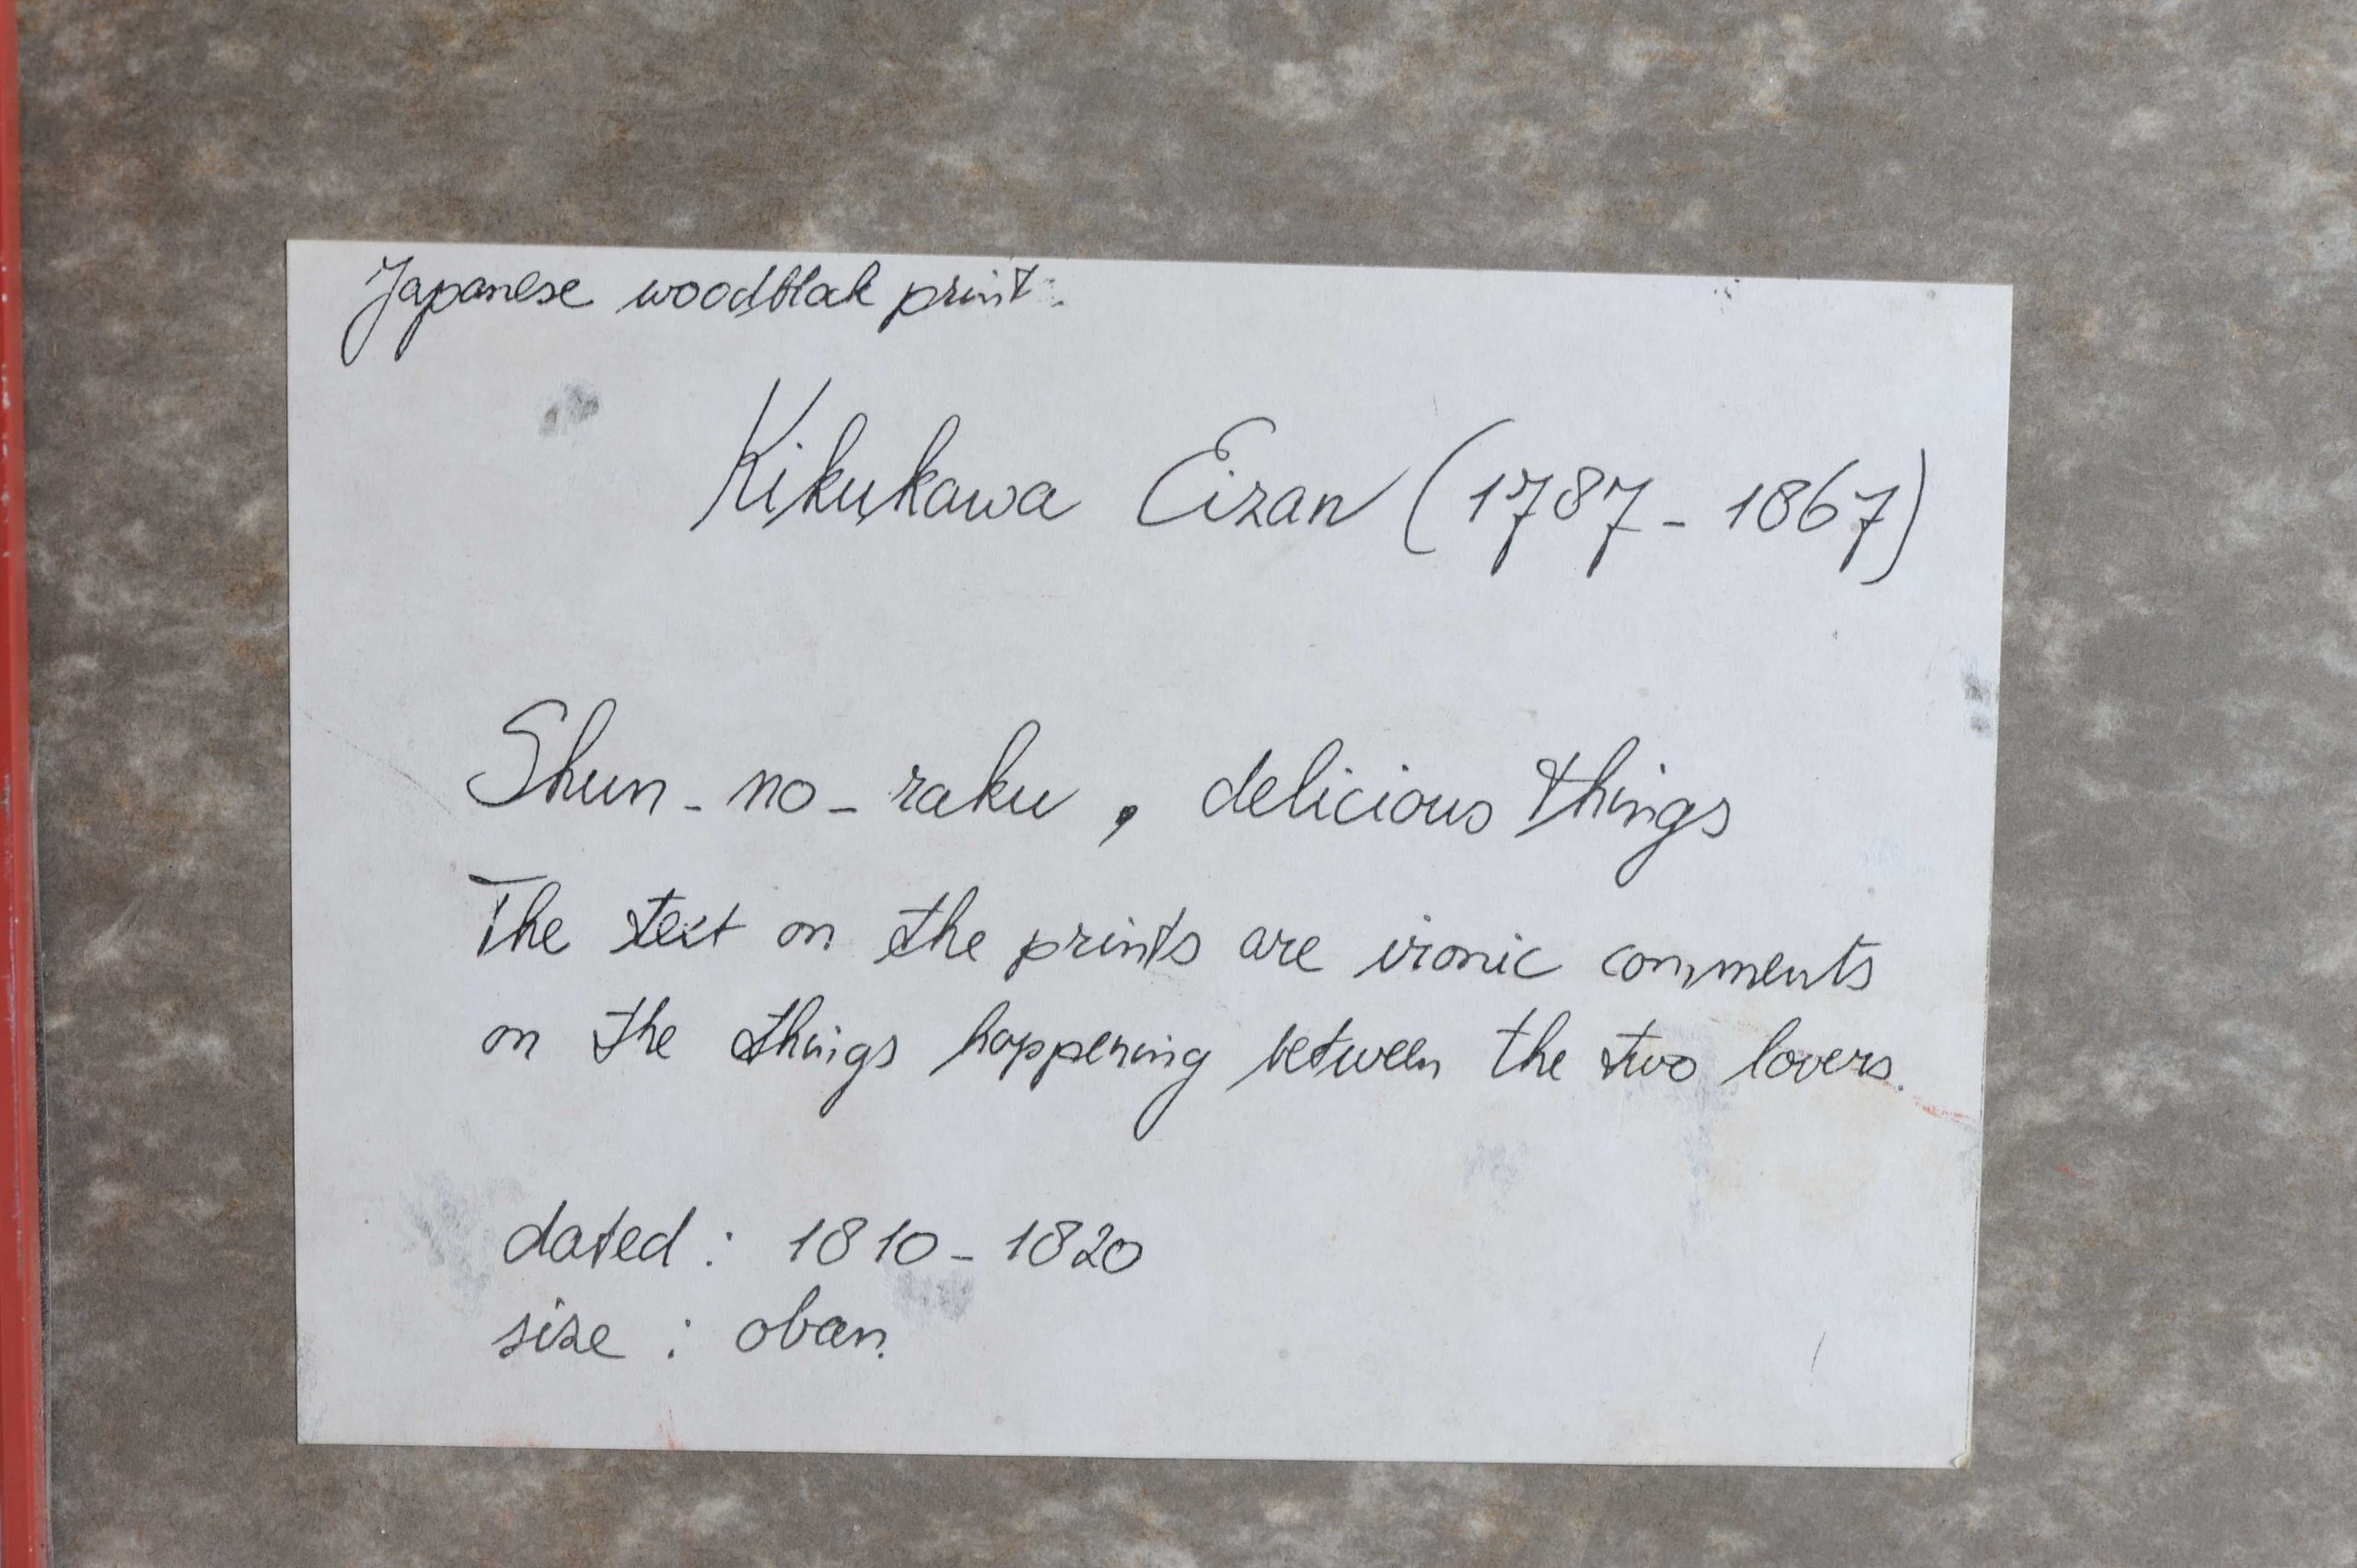 Japanese woodblak print.
Kikukawa Eizan (1787 - 1867)
Shun - no - raku , delicious things
The text on the prints are ironic comments
on the things happening between the two lovers.
dated : 1810 - 1820
size : oban.